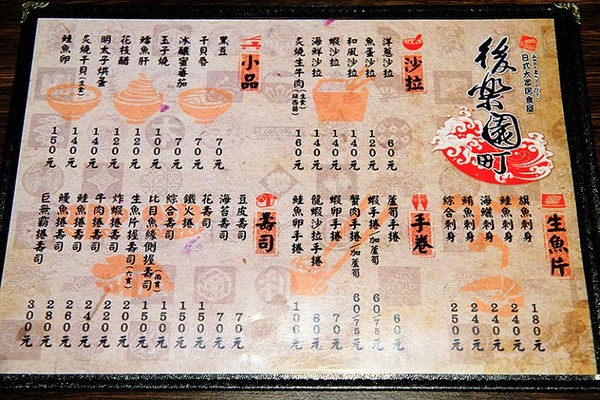 後樂園町
日式大眾居食屋
沙拉
洋蔥沙拉 60元
魚蛋沙拉 120元
和風沙拉 140元
蝦沙拉 140元
海鮮沙拉 140元
炙燒生牛肉(生食)(紐西蘭) 160元
小品
黑豆 70元
干貝唇 70元
冰釀蜜番茄 70元
玉子燒 100元
鱈魚肝 120元
花枝醋 120元
明太子烘蛋 140元
炙燒干貝(生食) 140元
鮭魚卵 150元
生魚片
旗魚刺身 180元
鮭魚刺身 240元
海鱺刺身 240元
鮪魚刺身 240元
綜合刺身 250元
手卷
蘆筍手捲 60元
蝦手捲/加蘆筍 60/75元
蟹肉手捲/加蘆筍 60/75元
蝦卵手捲 70元
龍蝦沙拉手捲 80元
鮭魚卵手捲 100元
壽司
豆皮壽司 70元
海苔壽司 70元
花壽司 150元
鐵火捲 150元
綜合壽司 150元
比目魚緣側握壽司(兩貫)
生魚片握壽司(六貫) 210元
炸蝦捲壽司 220元
牛肉捲壽司 220元
鮭魚捲壽司 260元
鰻魚捲壽司 280元
巨無霸捲壽司 300元